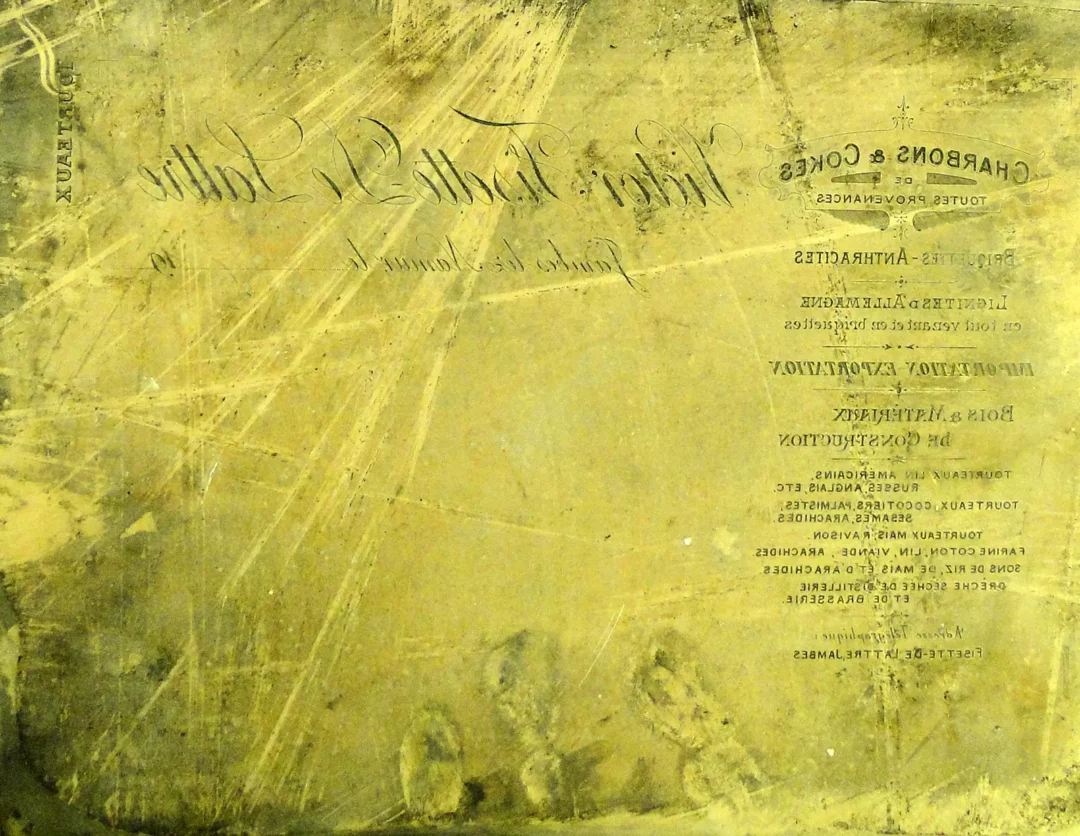 CHARBONS & COKES
DE
TOUTES PROVENANCES
BRIQUETTES - ANTHRACITES
LIGNITES D'ALLEMAGNE
en tout venant et en briquettes
IMPORTATION - EXPORTATION
BOIS & MATÉRIAUX
DE CONSTRUCTION
TOURTEAUX LIN AMÉRICAINS,
RUSSES, ANGLAIS, ETC.
TOURTEAUX, COCOTIERS, PALMISTES,
SÉSAMES, ARACHIDES.
TOURTEAUX MAÏS, RAVISON.
FARINE COTON, LIN, VIANDE, ARACHIDES
SONS DE RIZ, DE MAÏS ET D'ARACHIDES
DRÈCHE SÉCHÉE DE DISTILLERIE
ET DE BRASSERIE.
Adresse Télégraphique:
FISETTE-DE LATTRE, JAMBES
Victor Fisette-De Lattre
Jambes lez-Namur le 19
TOURTEAUX